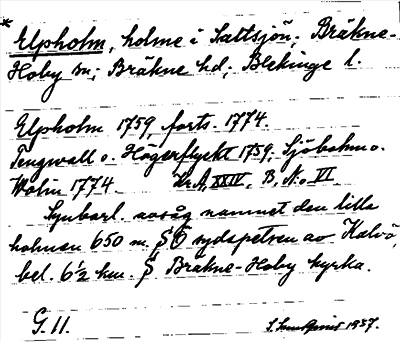 * Elpholm, holme i Saltsjön; Bräkne-
Hoby sn; Bräkne hd; Blekinge l.
Elpholm 1759, forts. 1774.
Tengwall o. Högerflyckt 1759. Sjöbohm o.
Wolin 1774. Kr.A. XXIV. B. N:o VI
Synbarl. avsåg namnet den lilla
holmen 650 m. S Ö sydspetsen av Kalvö,
bel. 6½ km. S Bräkne-Hoby kyrka.
G. 11.
1937.